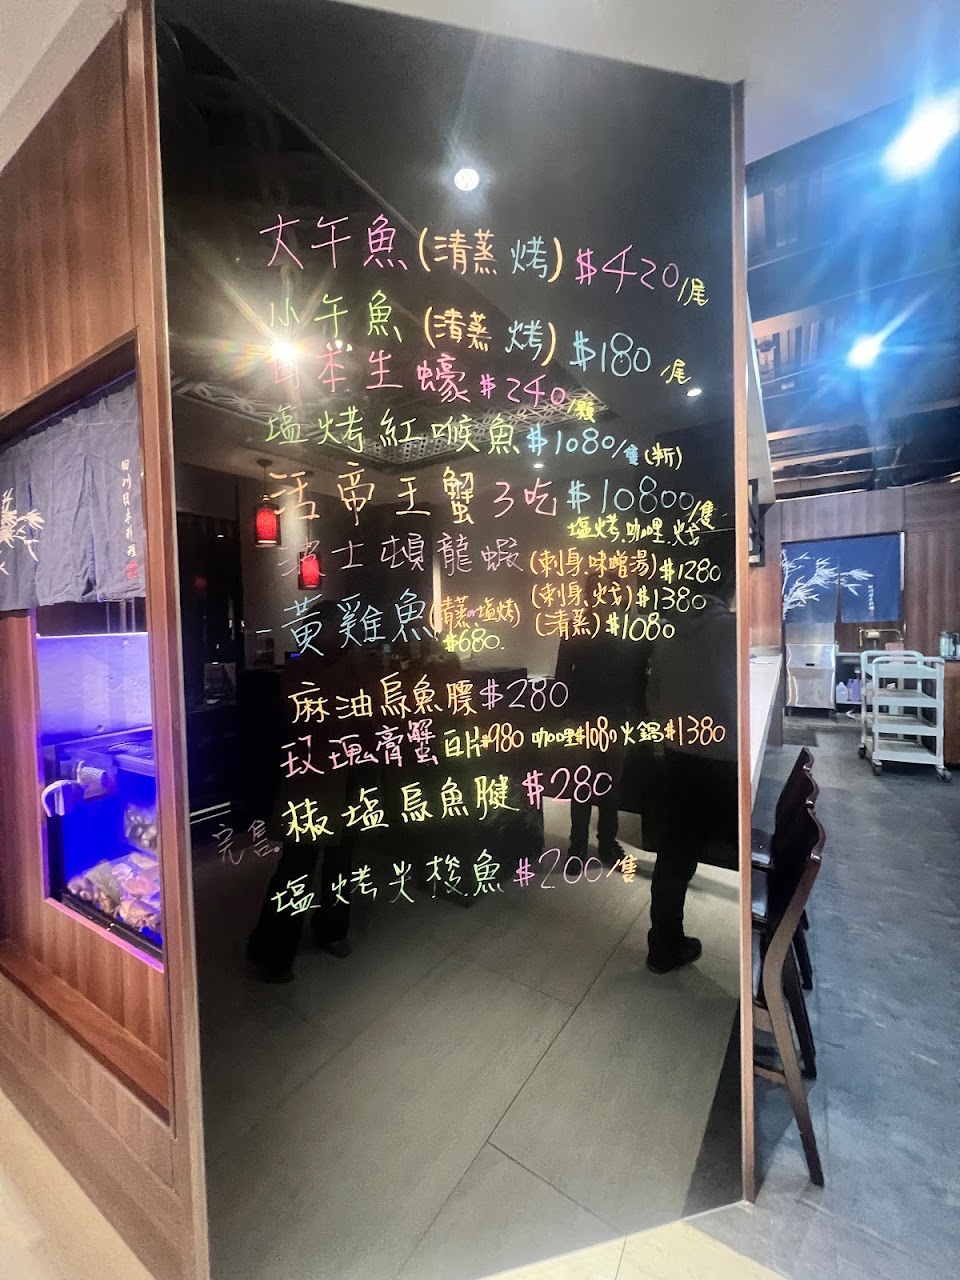 大午魚(清蒸 烤) $420/尾
小午魚 (清蒸 烤) $180/尾
日本生蠔 $240/顆
塩烤紅喉魚 $1080/隻(半斤)
活帝王蟹 3吃 $10800/隻
塩烤.咖哩.火戈
波士頓龍蝦 (刺身.味噌湯) $1280
(刺身.火戈) $1380
黃雞魚 (清蒸or塩烤) (清蒸) $1080
$680.
麻油烏魚膘 $280
玫瑰膏蟹 白片$980 咖哩$1080 火鍋$1380
椒塩烏魚腱 $280
完售
塩烤火梭魚 $200/隻
田川日本料理